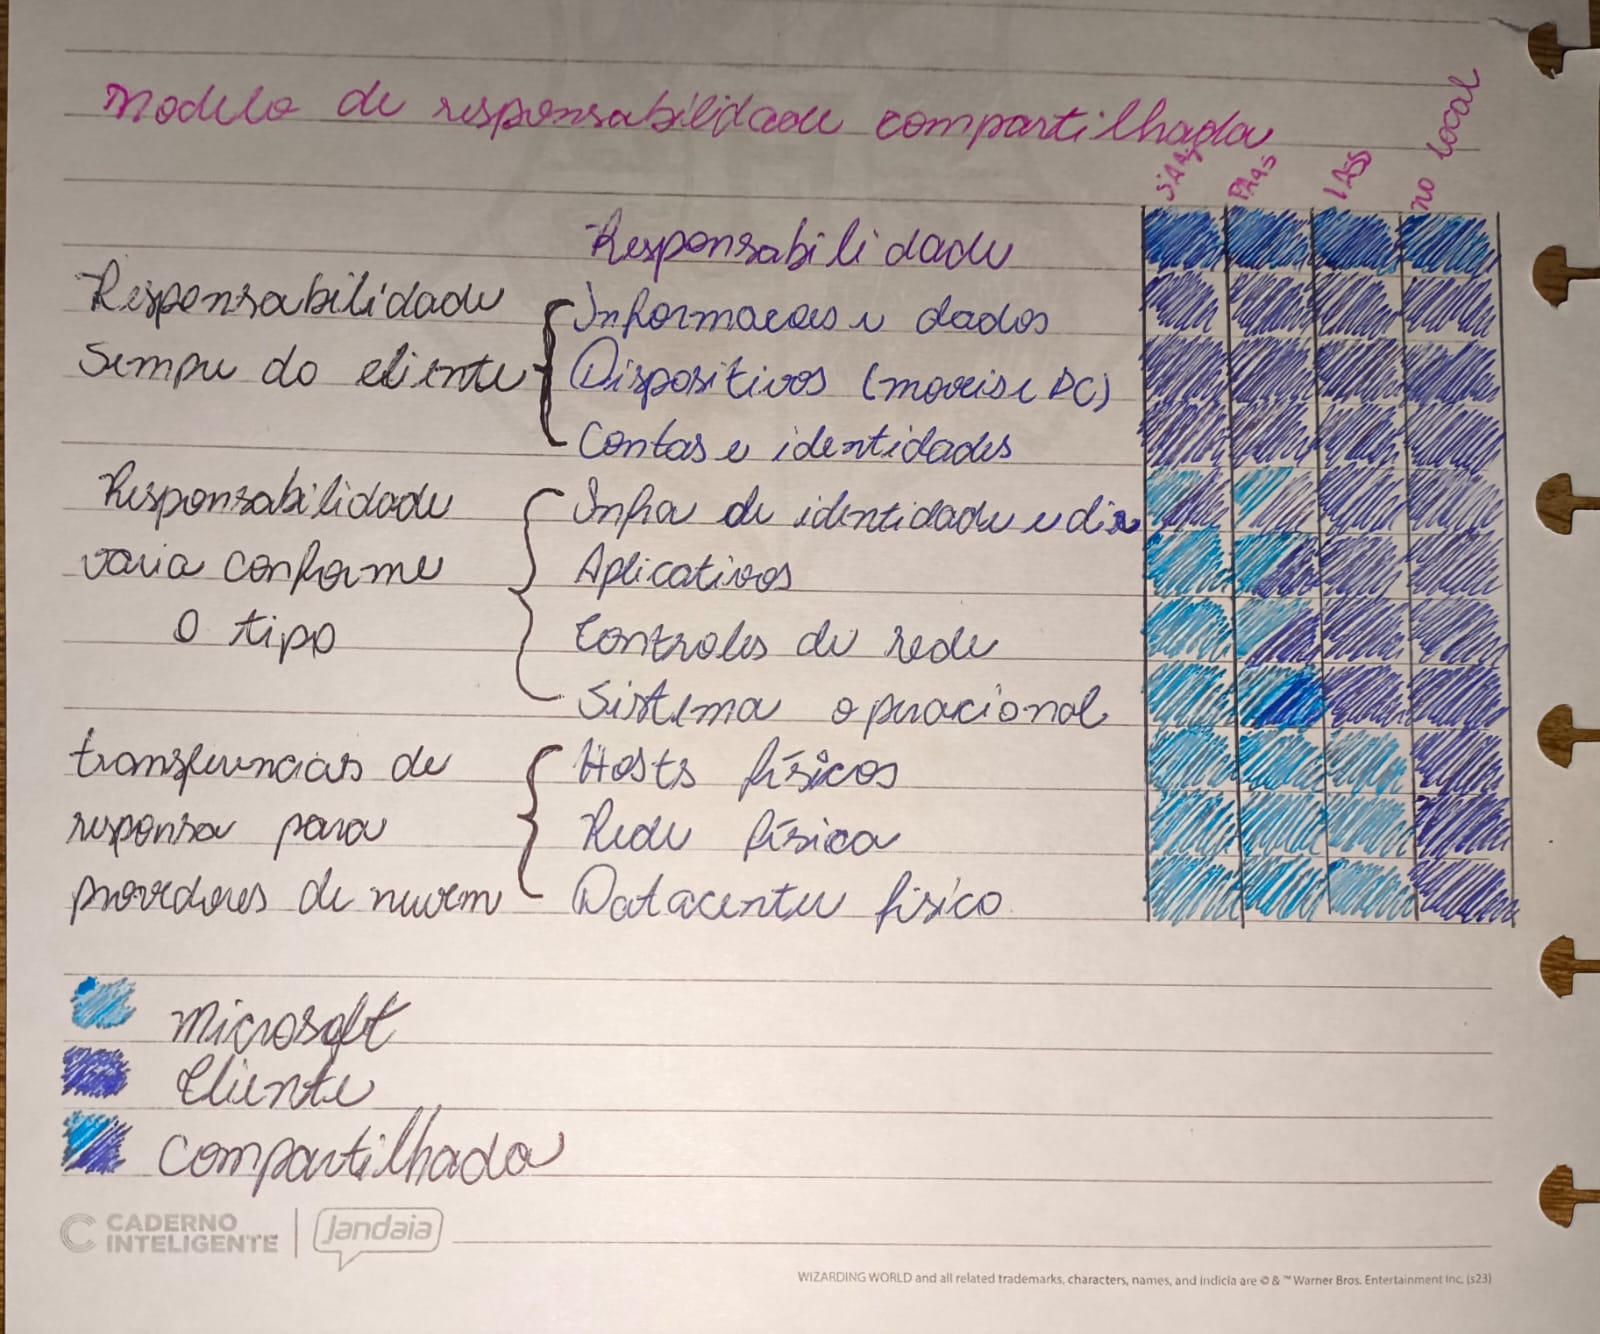 Modelo de responsabilidade compartilhada
SAAS PAAS IAAS no local
Responsabilidade
Responsabilidade
sempre do cliente
Informacoes e dados
Dispositivos (moveis e PC)
Contas e identidades
Responsabilidade
varia conforme
o tipo
Infra de identidade e dir
Aplicativos
Controles de rede
Sistema operacional
transferencias de
responsa para
provedores de nuvem
Hosts físicos
Rede física
Datacenter físico
Microsoft
Cliente
Compartilhada
CADERNO
INTELIGENTE
Jandaia
WIZARDING WORLD and all related trademarks, characters, names, and indicia are © & ™ Warner Bros. Entertainment Inc. (s23)